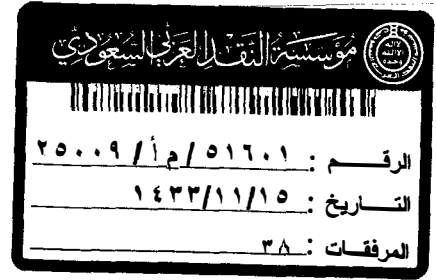 مؤسسة النقد العربي السعودي
الرقم : ٢٥٠٠٩ / م أ / ٥١٦٠١
التاريخ : ١٤٣٣/١١/١٥
المرفقات : ٣٨